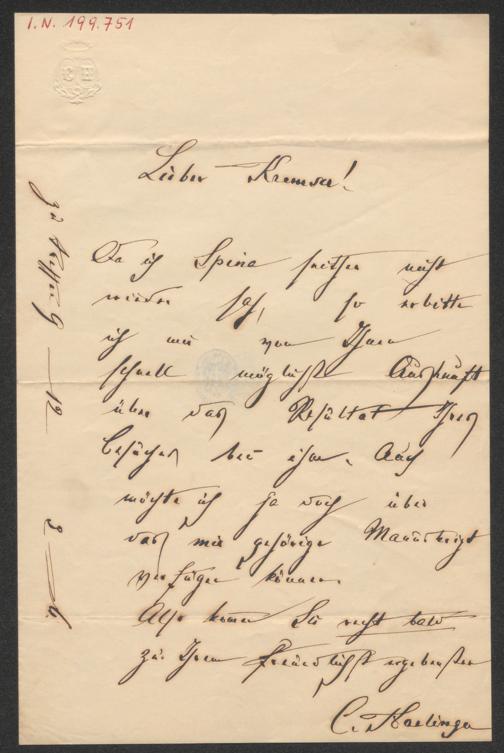 I.N. 199.751
Lieber Kremser!
Da ich Spina seither nicht
wieder sah, so erbitte
ich mir von Ihnen
schnell möglichst Auskunft
über das Resultat Ihres
Besuches bei ihm. Auch
möchte ich ja doch über
das mir gehörige Manuskript
verfügen können.
Also kommen Sie recht bald
zu Ihrem freundlichst ergebensten
C. Haslinger
zu treffen 9 — 12
3 — 6.